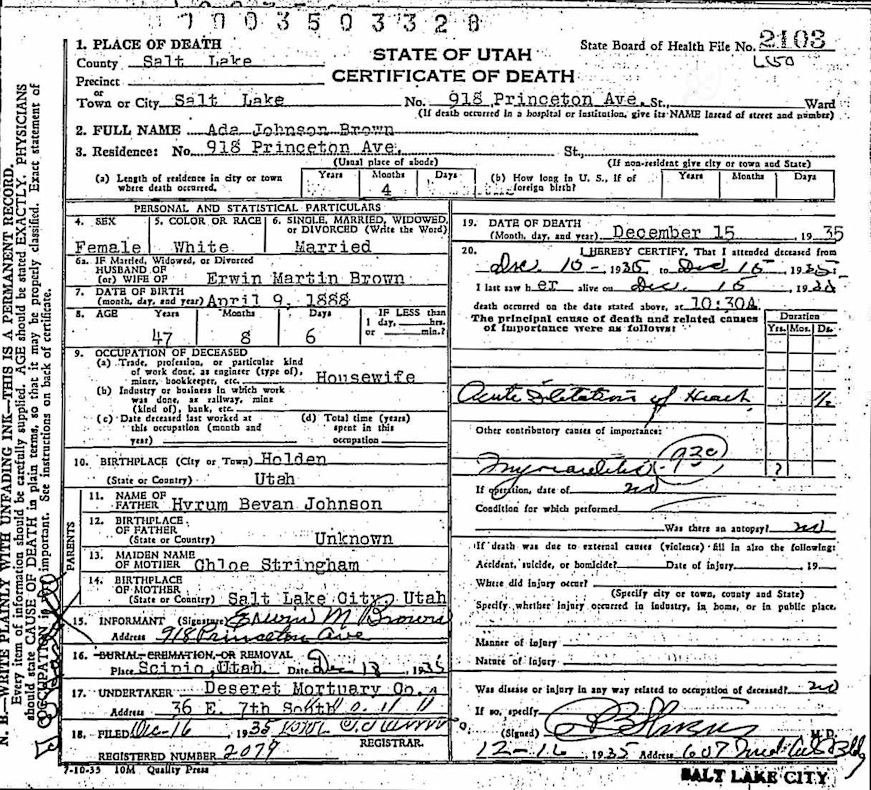 7003503328
1. PLACE OF DEATH
STATE OF UTAH
State Board of Health File No. 2103
County Salt Lake
CERTIFICATE OF DEATH
Precinct
or
Town or City Salt Lake No. 918 Princeton Ave. St., Ward
(If death occurred in a hospital or institution, give its NAME instead of street and number)
2. FULL NAME Ada Johnson Brown
3. Residence: No. 918 Princeton Ave. St.,
(Usual place of abode) (If non-resident give city or town and State)
(a) Length of residence in city or town where death occurred. Years Months 4 Days
(b) How long in U. S., if of foreign birth? Years Months Days
PERSONAL AND STATISTICAL PARTICULARS
4. SEX Female
5. COLOR OR RACE White
6. SINGLE, MARRIED, WIDOWED, or DIVORCED (Write the Word) Married
6a. IF Married, Widowed, or Divorced
HUSBAND OF
(or) WIFE OF Erwin Martin Brown
7. DATE OF BIRTH
(month, day, and year) April 9, 1888
8. AGE Years 47 Months 8 Days 6 IF LESS than 1 day, hrs. or min.?
9. OCCUPATION OF DECEASED
(a) Trade, profession, or particular kind
of work done, as engineer (type of),
miner, bookkeeper, etc. Housewife
(b) Industry or business in which work
was done, as railway, mine
(kind of), bank, etc.
(c) Date deceased last worked at
this occupation (month and
year)
(d) Total time (years)
spent in this
occupation
10. BIRTHPLACE (City or Town) Holden
(State or Country) Utah
PARENTS
11. NAME OF
FATHER Hyrum Bevan Johnson
12. BIRTHPLACE
OF FATHER
(State or Country) Unknown
13. MAIDEN NAME
OF MOTHER Chloe Stringham
14. BIRTHPLACE
OF MOTHER
(State or Country) Salt Lake City, Utah
15. INFORMANT (Signature) Erwin M Brown
Address 918 Princeton Ave
16. BURIAL, CREMATION, OR REMOVAL
Place Scipio, Utah. Date Dec 18, 1935
17. UNDERTAKER Deseret Mortuary Co.
Address 36 E. 7th South
18. FILED Dec-16, 1935
REGISTRAR.
REGISTERED NUMBER 2079
7-10-35 10M Quality Press
19. DATE OF DEATH
(Month, day, and year) December 15 1935
20. I HEREBY CERTIFY, That I attended deceased from
Dec. 10 - 1935 to Dec 15, 1935
I last saw her alive on Dec. 15, 1935
death occurred on the date stated above, at 10:30A
The principal cause of death and related causes
of importance were as follows:
Duration
Yrs. Mos. Ds.
Acute Dilatation of Heart
Other contributory causes of importance:
Myocarditis ?
If operation, date of no
Condition for which performed
Was there an autopsy? no
If death was due to external causes (violence) fill in also the following:
Accident, suicide, or homicide? Date of injury 19
Where did injury occur?
(Specify city or town, county and State)
Specify whether injury occurred in industry, in home, or in public place.
Manner of injury
Nature of injury
Was disease or injury in any way related to occupation of deceased? no
If so, specify
(Signed) M.D.
12-16 1935 Address 607 Med Arts Bldg
SALT LAKE CITY
N. B.—WRITE PLAINLY WITH UNFADING INK—THIS IS A PERMANENT RECORD.
Every item of information should be carefully supplied. AGE should be stated EXACTLY. PHYSICIANS
should state CAUSE OF DEATH in plain terms, so that it may be properly classified. Exact statement of
OCCUPATION is important. See instructions on back of certificate.